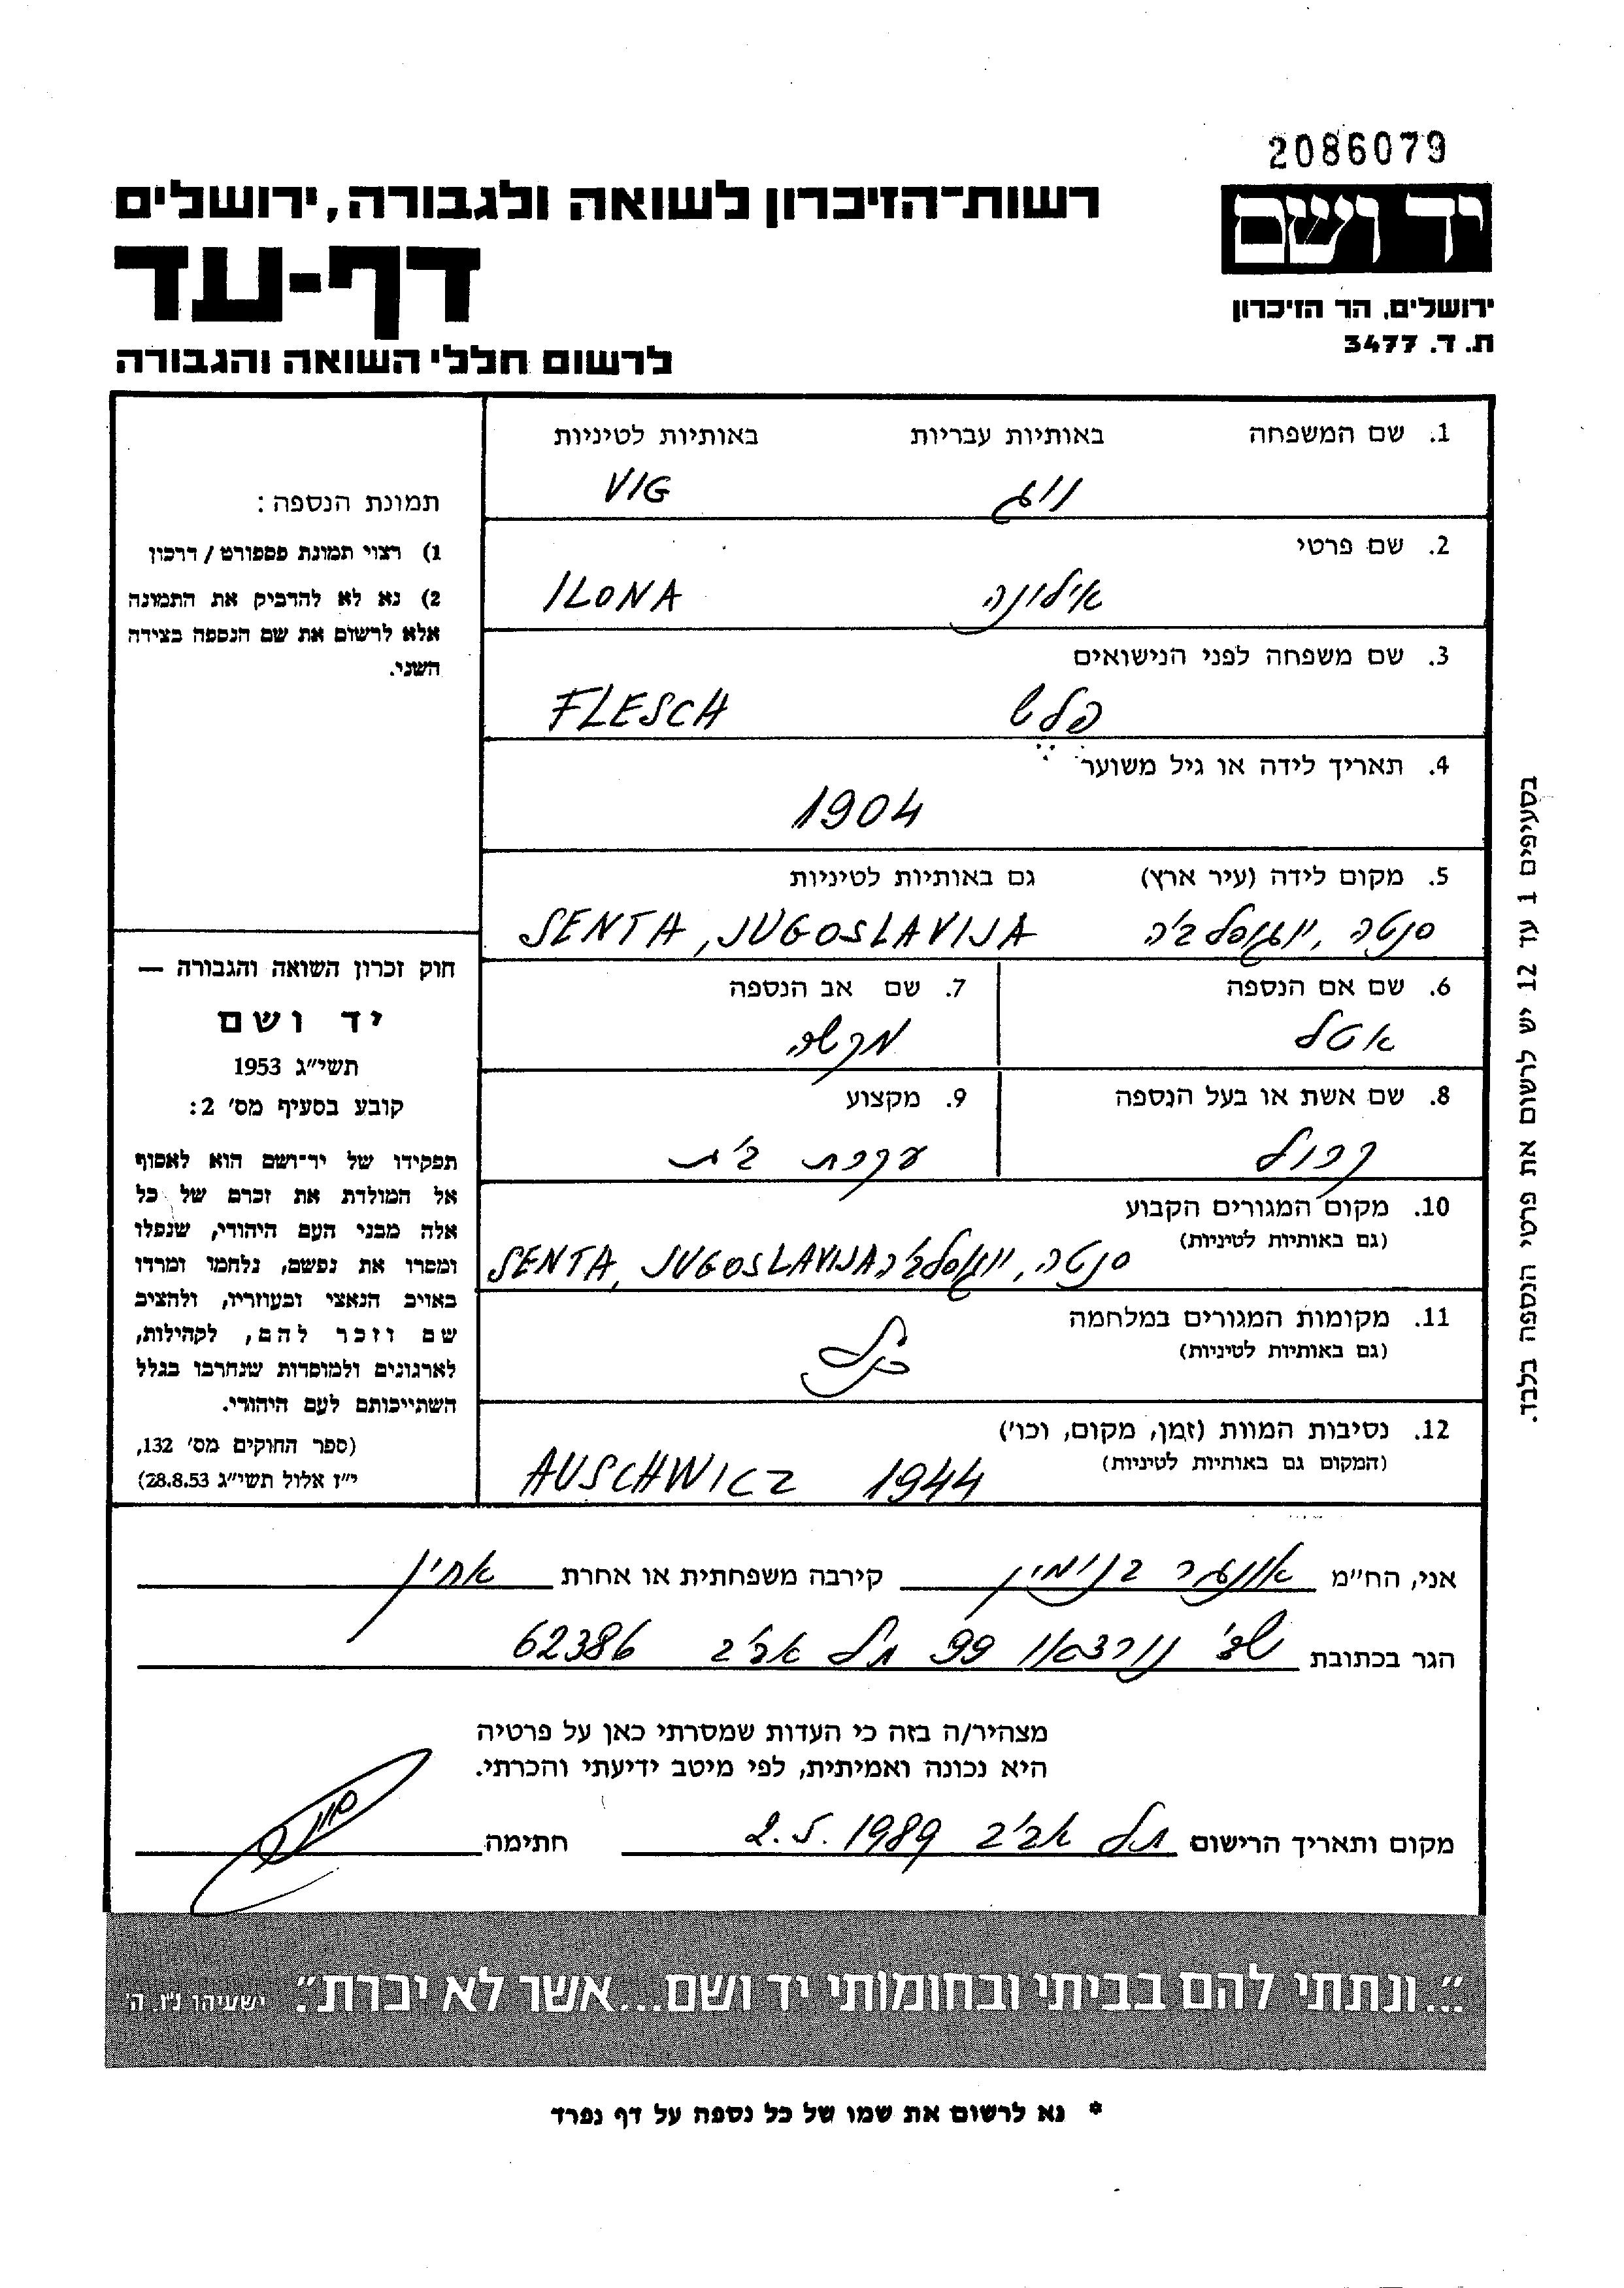 2086079
יד ושם
רשות־הזיכרון לשואה ולגבורה, ירושלים
דף-עד
ירושלים, הר הזיכרון
ת. ד. 3477
לרשום חללי השואה והגבורה
1. שם המשפחה באותיות עבריות באותיות לטיניות
וויג VIG
2. שם פרטי
אילונה ILONA
3. שם משפחה לפני הנישואים
פלש FLESCH
4. תאריך לידה או גיל משוער
1904
5. מקום לידה (עיר ארץ) גם באותיות לטיניות
סנטה, יוגוסלביה SENTA, JUGOSLAVIJA
6. שם אם הנספה 7. שם אב הנספה
אטל
8. שם אשת או בעל הנספה 9. מקצוע
קרול עקרת בית
10. מקום המגורים הקבוע
(גם באותיות לטיניות)
סנטה, יוגוסלביה SENTA, JUGOSLAVIJA
11. מקומות המגורים במלחמה
(גם באותיות לטיניות)
כנ"ל
12. נסיבות המוות (זמן, מקום, וכו')
(המקום גם באותיות לטיניות)
AUSCHWICZ 1944
תמונת הנספה:
1) רצוי תמונת פספורט / דרכון
2) נא לא להדביק את התמונה
אלא לרשום את שם הנספה בצידה
השני.
חוק זכרון השואה והגבורה —
יד ושם
תשי״ג 1953
קובע בסעיף מס׳ 2:
תפקידו של יד־ושם הוא לאסוף
אל המולדת את זכרם של כל
אלה מבני העם היהודי, שנפלו
ומסרו את נפשם, נלחמו ומרדו
באויב הנאצי ובעוזריו, ולהציב
שם וזכר להם, לקהילות,
לארגונים ולמוסדות שנחרבו בגלל
השתייכותם לעם היהודי.
(ספר החוקים מס׳ 132,
י״ז אלול תשי״ג 28.8.53)
בסעיפים 1 עד 12 יש לרשום את פרטי הנספה בלבד.
אני, הח״מ אונגר בנימין קירבה משפחתית או אחרת אחין
הגר בכתובת שד' נורדאו 99 תל אביב 62386
מצהיר/ה בזה כי העדות שמסרתי כאן על פרטיה
היא נכונה ואמיתית, לפי מיטב ידיעתי והכרתי.
מקום ותאריך הרישום תל אביב 2.5.1989 חתימה
״...ונתתי להם בביתי ובחומותי יד ושם...אשר לא יכרת״. ישעיהו נ״ו, ה׳
* נא לרשום את שמו של כל נספה על דף נפרד